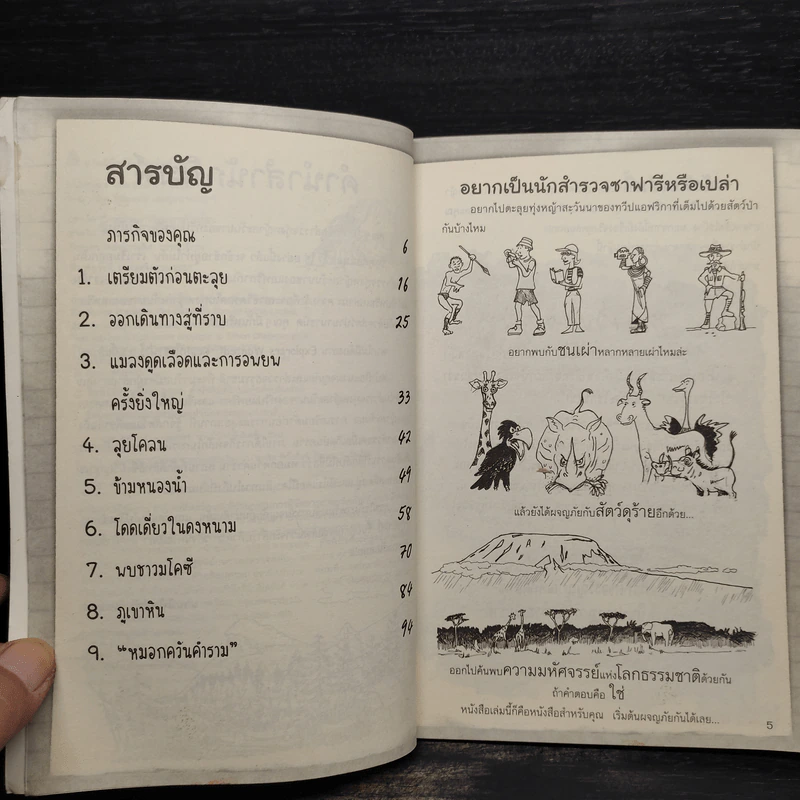 สารบัญ
ภารกิจของคุณ 6
1. เตรียมตัวก่อนตะลุย 16
2. ออกเดินทางสู่ที่ราบ 25
3. แมลงดูดเลือดและการอพยพ
ครั้งยิ่งใหญ่ 33
4. ลุยโคลน 42
5. ข้ามหนองน้ำ 49
6. โดดเดี่ยวในดงหนาม 58
7. พบชาวมโคซี 70
8. ภูเขาหิน 84
9. “หมอกควันคำราม” 94
อยากเป็นนักสำรวจซาฟารีหรือเปล่า
อยากไปตะลุยทุ่งหญ้าสะวันนาของทวีปแอฟริกาที่เต็มไปด้วยสัตว์ป่า
กันบ้างไหม
อยากพบกับชนเผ่าหลากหลายเผ่าไหมล่ะ
แล้วยังได้ผจญภัยกับสัตว์ดุร้ายอีกด้วย...
ออกไปค้นพบความมหัศจรรย์แห่งโลกธรรมชาติด้วยกัน
ถ้าคำตอบคือ ใช่
หนังสือเล่มนี้ก็คือหนังสือสำหรับคุณ เริ่มต้นผจญภัยกันได้เลย...
5